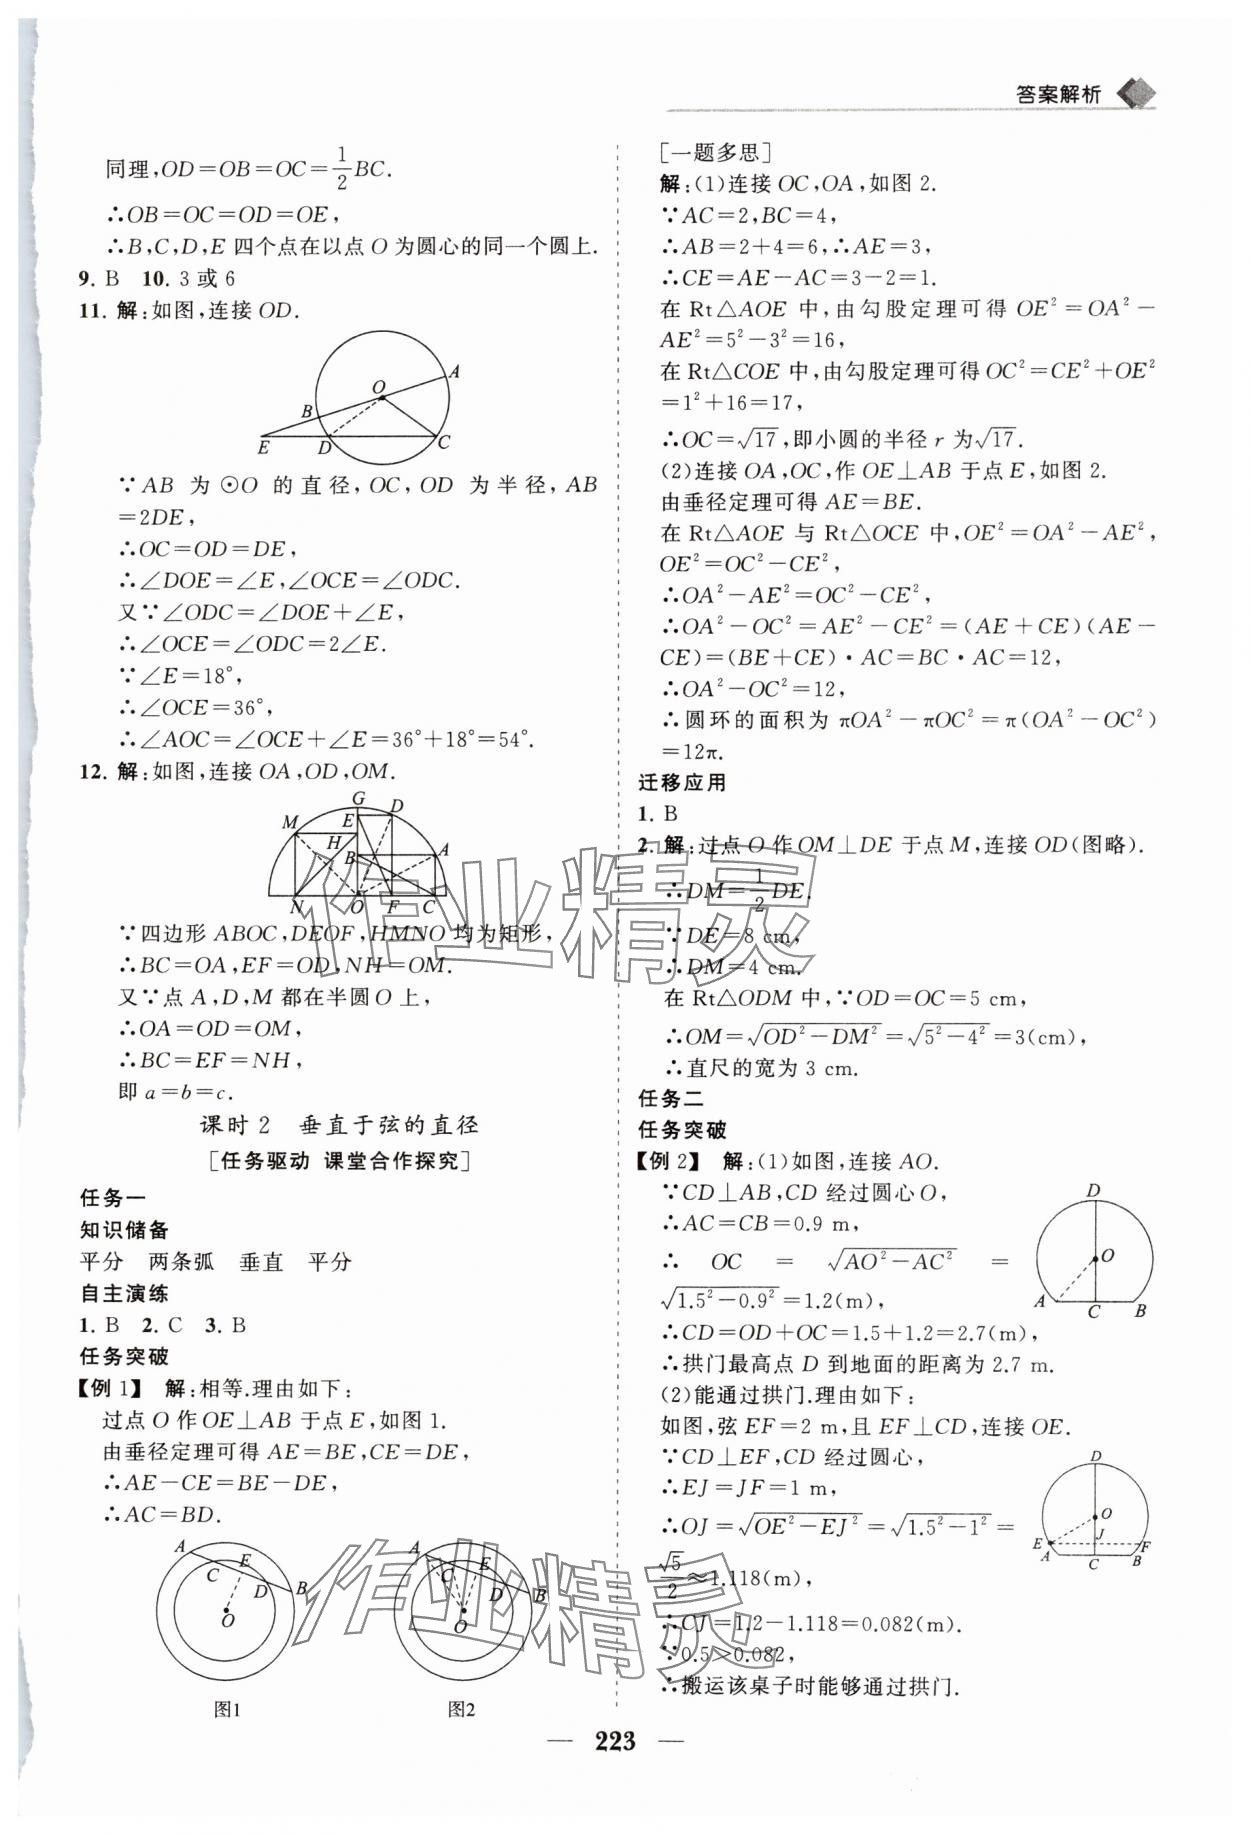 答案解析
同理,OD=OB=OC=1/2BC.
∴OB=OC=OD=OE,
∴B,C,D,E 四个点在以点 O 为圆心的同一个圆上.
9. B 10. 3 或 6
11. 解:如图,连接 OD.
A
O
B
E D C
∵AB 为 ⊙O 的直径,OC,OD 为半径,AB
=2DE,
∴OC=OD=DE,
∴∠DOE=∠E,∠OCE=∠ODC.
又∵∠ODC=∠DOE+∠E,
∴∠OCE=∠ODC=2∠E.
∵∠E=18°,
∴∠OCE=36°,
∴∠AOC=∠OCE+∠E=36°+18°=54°.
12. 解:如图,连接 OA,OD,OM.
G
M E D
H
B A
N O F C
∵四边形 ABOC,DEOF,HMNO 均为矩形,
∴BC=OA,EF=OD,NH=OM.
又∵点 A,D,M 都在半圆 O 上,
∴OA=OD=OM,
∴BC=EF=NH,
即 a=b=c.
课时 2 垂直于弦的直径
[任务驱动 课堂合作探究]
任务一
知识储备
平分 两条弧 垂直 平分
自主演练
1. B 2. C 3. B
任务突破
【例 1】 解:相等.理由如下:
过点 O 作 OE⊥AB 于点 E,如图 1.
由垂径定理可得 AE=BE,CE=DE,
∴AE-CE=BE-DE,
∴AC=BD.
A E
C D B
O
图1
A E
C D B
O
图2
[一题多思]
解:(1)连接 OC,OA,如图 2.
∵AC=2,BC=4,
∴AB=2+4=6,∴AE=3,
∴CE=AE-AC=3-2=1.
在 Rt△AOE 中,由勾股定理可得 OE²=OA²-
AE²=5²-3²=16,
在 Rt△COE 中,由勾股定理可得 OC²=CE²+OE²
=1²+16=17,
∴OC=√17,即小圆的半径 r 为√17.
(2)连接 OA,OC,作 OE⊥AB 于点 E,如图 2.
由垂径定理可得 AE=BE.
在 Rt△AOE 与 Rt△OCE 中,OE²=OA²-AE²,
OE²=OC²-CE²,
∴OA²-AE²=OC²-CE²,
∴OA²-OC²=AE²-CE²=(AE+CE)(AE-
CE)=(BE+CE)·AC=BC·AC=12,
∴OA²-OC²=12,
∴圆环的面积为 πOA²-πOC²=π(OA²-OC²)
=12π.
迁移应用
1. B
2. 解:过点 O 作 OM⊥DE 于点 M,连接 OD(图略).
∴DM=1/2DE.
∵DE=8 cm,
∴DM=4 cm.
在 Rt△ODM 中,∵OD=OC=5 cm,
∴OM=√(OD²-DM²)=√(5²-4²)=3(cm),
∴直尺的宽为 3 cm.
任务二
任务突破
【例 2】 解:(1)如图,连接 AO.
∵CD⊥AB,CD 经过圆心 O,
∴AC=CB=0.9 m,
∴ OC = √(AO²-AC²) =
√(1.5²-0.9²)=1.2(m),
∴CD=OD+OC=1.5+1.2=2.7(m),
∴拱门最高点 D 到地面的距离为 2.7 m.
D
O
A C B
(2)能通过拱门.理由如下:
如图,弦 EF=2 m,且 EF⊥CD,连接 OE.
∵CD⊥EF,CD 经过圆心,
∴EJ=JF=1 m,
∴OJ=√(OE²-EJ²)=√(1.5²-1²)=
√5/2≈1.118(m),
∴CJ=1.2-1.118=0.082(m).
∵0.5>0.082,
∴搬运该桌子时能够通过拱门.
D
O
E J F
A C B
作业精灵
作业精灵
— 223 —